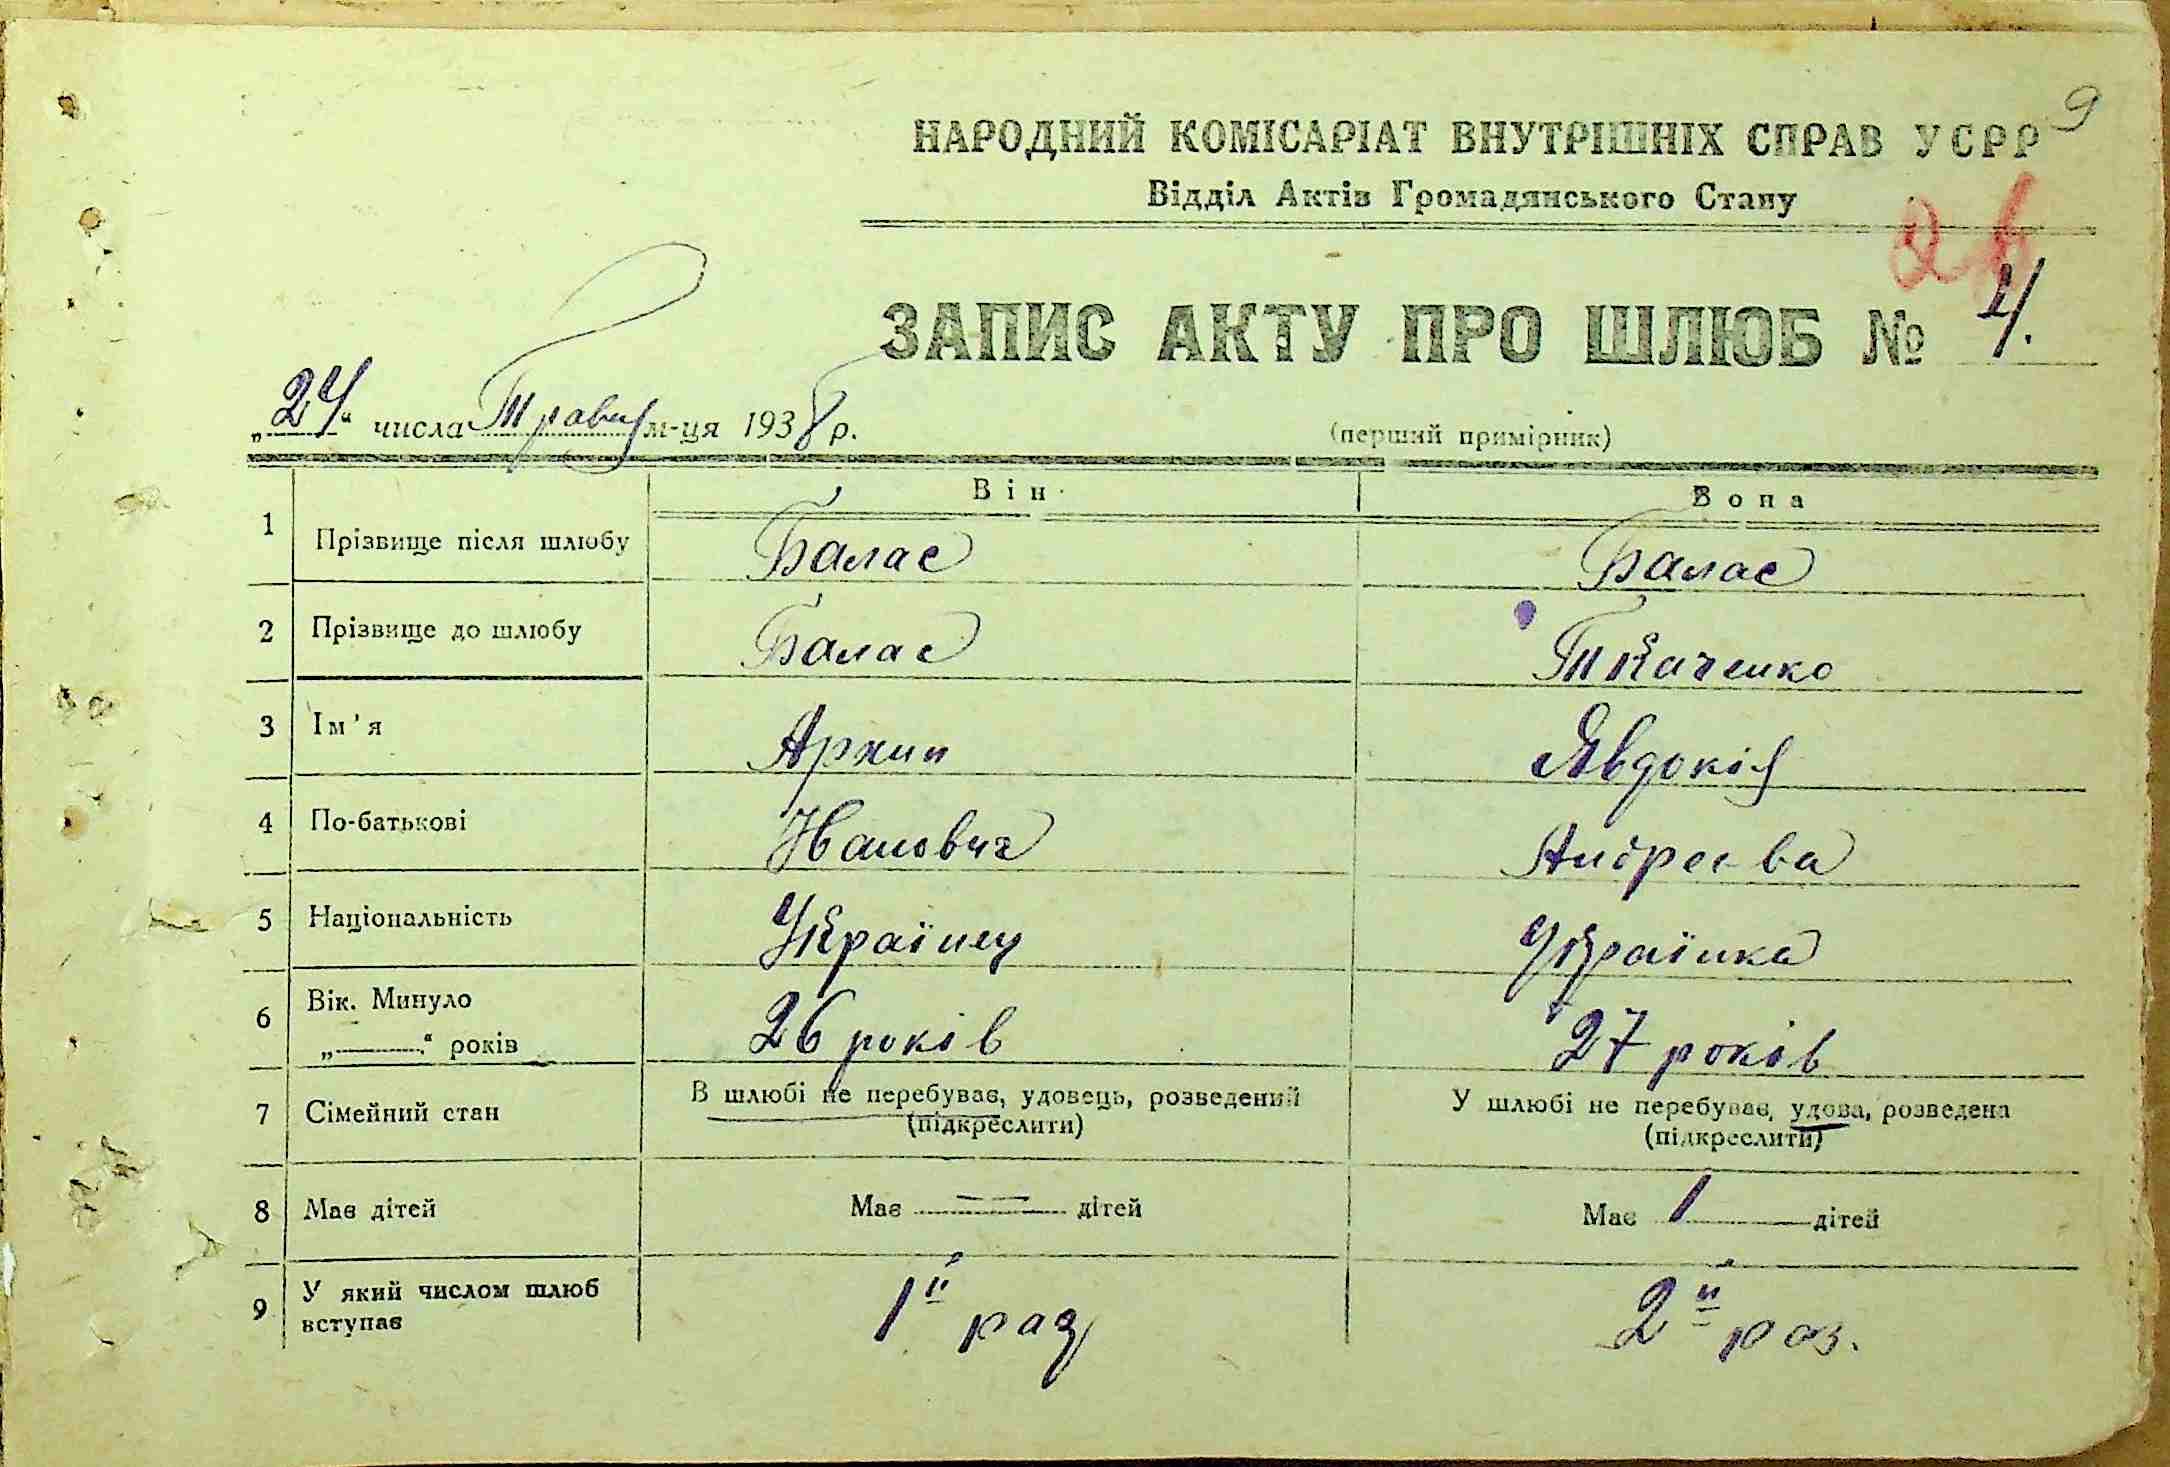 9
НАРОДНИЙ КОМІСАРІАТ ВНУТРІШНІХ СПРАВ УСРР
Відділ Актів Громадянського Стану
ЗАПИС АКТУ ПРО ШЛЮБ № 4.
„24“ числа Травня м-ця 1938 р.
(перший примірник)
Він Вона
1 Прізвище після шлюбу Балас Балас
2 Прізвище до шлюбу Балас Ткаченко
3 Ім'я Архип Явдокія
4 По-батькові Андреева
5 Національність Українец Українка
6 Вік. Минуло
„ “ років 26 років 27 років
7 Сімейний стан В шлюбі не перебуває, удовець, розведений (підкреслити) У шлюбі не перебуває, удова, розведена (підкреслити)
8 Має дітей Має = дітей Має 1 дітей
9 У який числом шлюб
вступає 1й раз 2й раз.